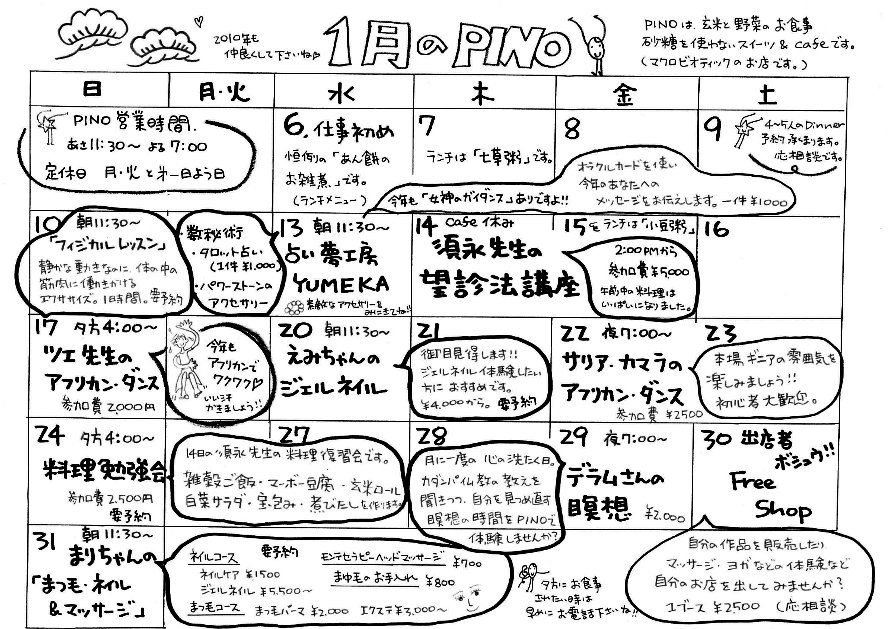 2010年も
仲良くして下さいね♪
1月のPINO
PINOは、玄米と野菜のお食事
砂糖を使わないスイーツ & cafeです。
(マクロビオティックのお店です。)
日 月・火 水 木 金 土
PINO 営業時間.
あさ11:30～よる7:00
定休日 月・火と第一日よう日
6. 仕事初め
恒例の「あん餅の
お雑煮」です。
(ランチメニュー)
7
ランチは「七草粥」です。
8
オラクルカードを使い
今年のあなたへの
メッセージをお伝えします。一件¥1000
今年も「女神のガイダンス」ありですよ!!
9
4~5人のDinner
予約承ります。
応相談です。
10 朝11:30～
「フィジカルレッスン」
静かな動きなのに、体の中の
筋肉に働きかける
エクササイズ。1時間。要予約
数秘術
・タロット占い
(1件¥1,000)
・パワーストーンの
アクセサリー
13 朝11:30～
占い夢工房
YUMEKA
素敵なアクセサリーを
みにきてね!!
14 cafe 休み
須永先生の
望診法講座
15 ランチは「小豆粥」
2:00PMから
参加費¥5000
午前中の料理は
いっぱいになりました。
16
17 夕方4:00～
ツエ先生の
アフリカン・ダンス
参加費2,000円
今年も
アフリカンで
ワクワク♡
いい汗
かきましょう!!
20 朝11:30～
えみちゃんの
ジェルネイル
21
御目見得します!!
ジェルネイル体験したい
方におすすめです。
¥4,000から。要予約
22 夜7:00～
サリア・カマラの
アフリカン・ダンス
参加費¥2500
23
本場ギニアの雰囲気を
楽しみましょう!!
初心者大歓迎。
24 夕方4:00～
料理勉強会
参加費2,500円
要予約
27
14日の須永先生の料理復習会です。
雑穀ご飯・マーボー豆腐・玄米ロール
白菜サラダ・宝包み・煮びたしを作ります。
28
月に一度の心の洗たく日。
カダンパイム教の教えを
聞きつつ、自分を見つめ直す
瞑想の時間をPINOで
体験しませんか?
29 夜7:00～
デラムさんの
瞑想 ¥2,000
30 出店者
ボシュウ!!
Free
Shop
31 朝11:30～
まりちゃんの
「まつ毛・ネイル
&マッサージ」
ネイルコース 要予約
ネイルケア ¥1500
ジェルネイル ¥5,500～
まつ毛コース まつ毛パーマ ¥2,000 エクステ¥3,000～
モンテセラピーヘッドマッサージ ¥700
まゆ毛のお手入れ ¥800
夕方にお食事
されたい時は
早めにお電話下さいね!!
自分の作品を販売したり
マッサージ・ヨガなどの体験など
自分のお店を出してみませんか?
1ブース ¥2500 (応相談)